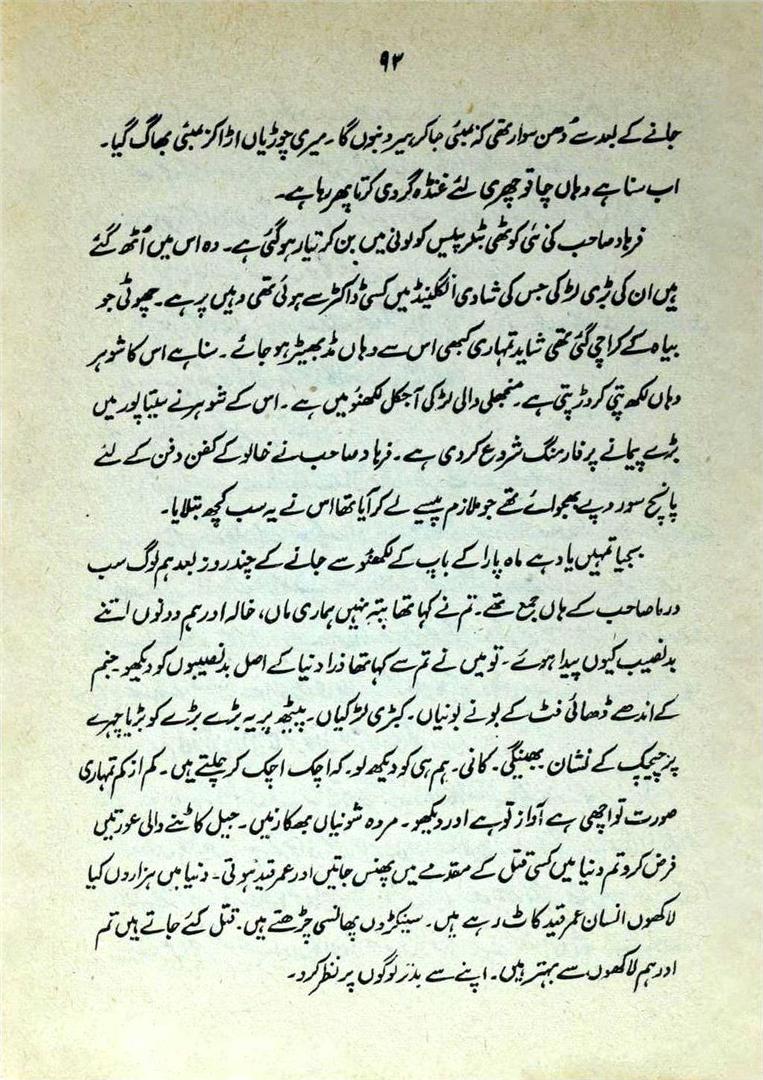 ۹۳
جانے کے بعد سے دُھن سوار تھی کہ بمبئی جاکر ہیرو بنوں گا۔ میری چوڑیاں اڑا کر بمبئی بھاگ گیا۔
اب سنا ہے وہاں چاقو چھری لئے غنڈہ گردی کرتا پھر رہا ہے۔
فرہاد صاحب کی نئی کوٹھی بٹلر پیلیس کولونی میں بن کر تیار ہوگئی ہے۔ وہ اس میں اُٹھ گئے
ہیں ان کی بڑی لڑکی جس کی شادی انگلینڈ میں کسی ڈاکٹر سے ہوئی تھی وہیں پر ہے۔ چھوٹی جو
بیاہ کے کراچی گئی تھی شاید تمہاری کبھی اس سے وہاں مڈبھیڑ ہو جائے۔ سنا ہے اس کا شوہر
وہاں لکھ پتی کروڑ پتی ہے۔ منجھلی والی لڑکی آجکل لکھنؤ میں ہے۔ اس کے شوہر نے سیتاپور میں
بڑے پیمانے پر فارمنگ شروع کردی ہے۔ فرہاد صاحب نے خالو کے کفن دفن کے لئے
پانچ سو روپے بھجوائے تھے جو ملازم پیسے لے کر آیا تھا اس نے یہ سب کچھ بتلایا۔
بجیا تمہیں یاد ہے ماہ پارا کے باپ کے لکھنؤ سے جانے کے چند روز بعد ہم لوگ سب
ورما صاحب کے ہاں جمع تھے۔ تم نے کہا تھا پتہ نہیں ہماری ماں، خالہ اور ہم دونوں اتنے
بدنصیب کیوں پیدا ہوئے۔ تو میں نے تم سے کہا تھا ذرا دنیا کے اصل بدنصیبوں کو دیکھو۔ جنم
کے اندھے ڈھائی فٹ کے بونے بونیاں۔ کبڑی لڑکیاں۔ پیٹھ پر یہ بڑے بڑے کوبڑ یا چہرے
پر چیچک کے نشان بھینگی۔ کانی۔ ہم ہی کو دیکھ لو۔ کہ اچک اچک کر چلتے ہیں۔ کم از کم تمہاری
صورت تو اچھی ہے آواز تو ہے اور دیکھو۔ مردہ شونیاں بھکارنیں۔ جیل کاٹنے والی عورتیں
فرض کرو تم دنیا میں کسی قتل کے مقدمے میں پھنس جاتیں اور عمر قید ہوتی۔ دنیا میں ہزاروں کیا
لاکھوں انسان عمر قید کاٹ رہے ہیں۔ سینکڑوں پھانسی چڑھتے ہیں۔ قتل کئے جاتے ہیں تم
اور ہم لاکھوں سے بہتر ہیں۔ اپنے سے بدتر لوگوں پر نظر کرو۔